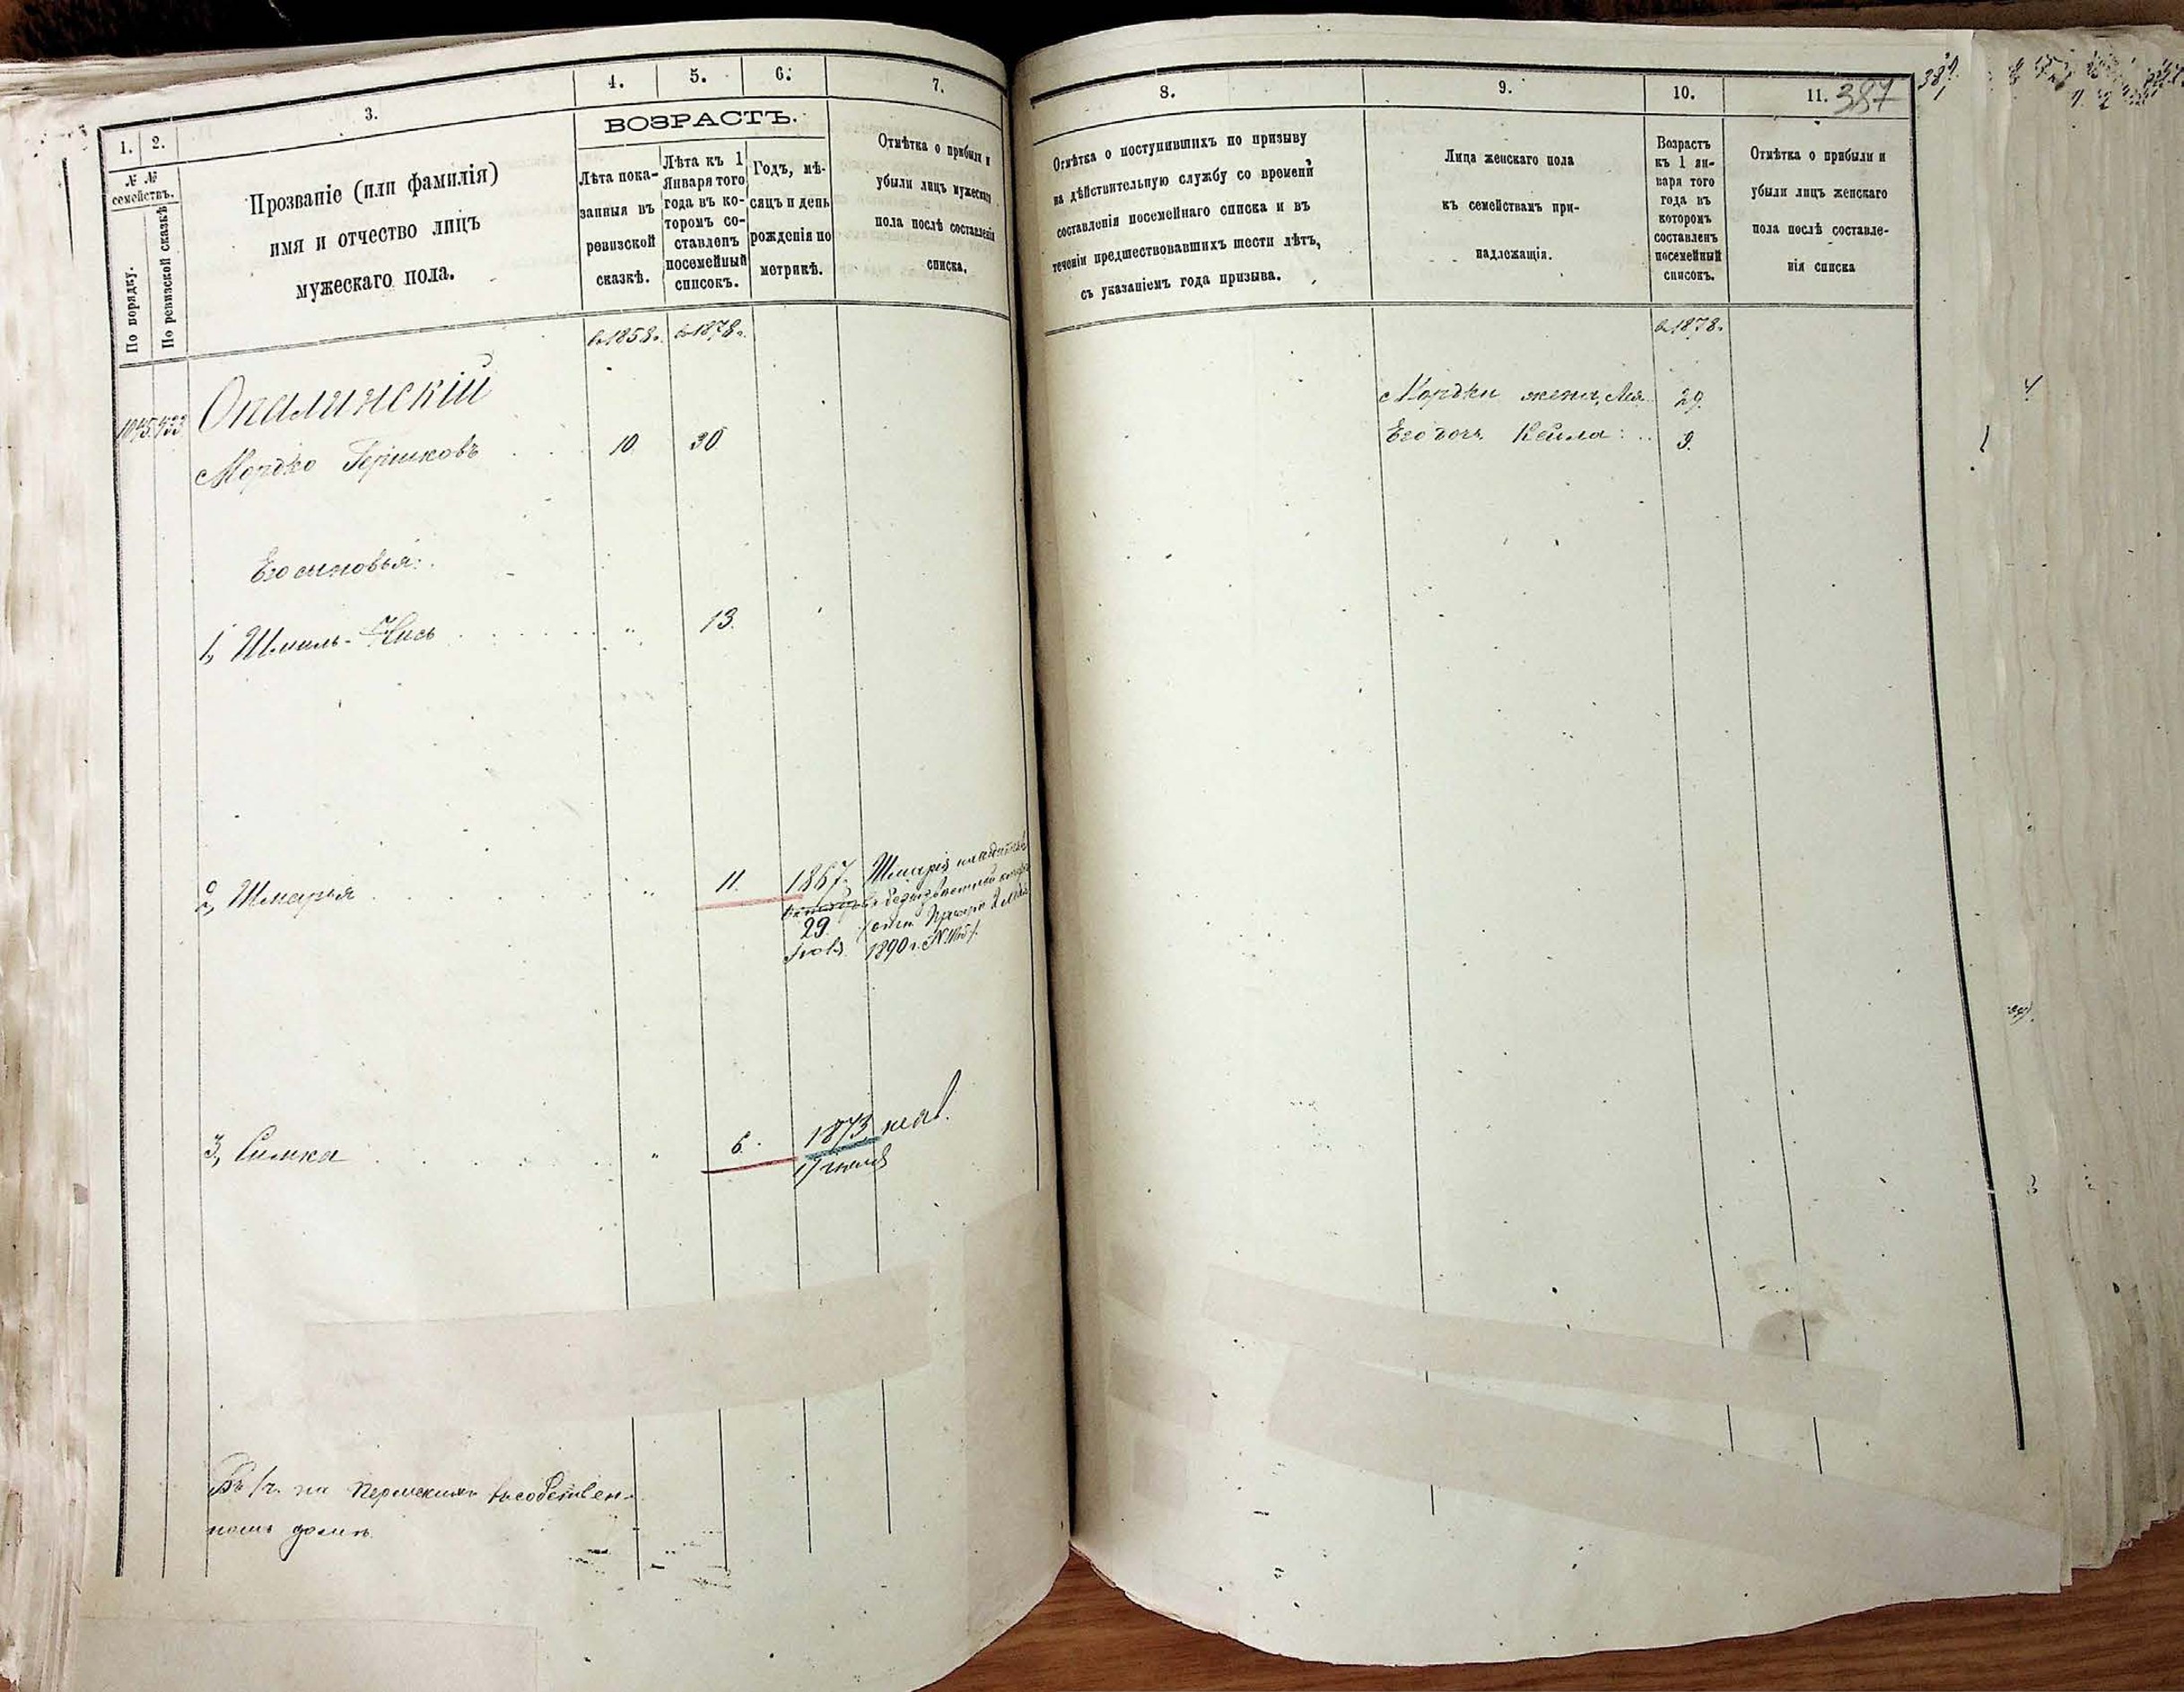 1.
2.
3.
4.
5.
6.
7.
№ №
семействъ.
По порядку.
По ревизской сказкѣ
Прозваніе (или фамилія)
имя и отчество лицъ
мужескаго пола.
ВОЗРАСТЪ.
Лѣта пока-
занныя въ
ревизской
сказкѣ.
Лѣта къ 1
Января того
года въ ко-
торомъ со-
ставленъ
посемейный
списокъ.
Годъ, мѣ-
сяцъ и день
рожденія по
метрикѣ.
Отмѣтка о прибыли и
убыли лицъ мужескаго
пола послѣ составленія
списка.
в 1858 г. в 1878 г.
Опалинскій
Мордко Гершковъ 10. 30
Его сыновья:
1, Шмиль-Нись " 13.
2, Шмарья " 11. 1867.
29
1890 г. №
3, Симка " 6. 1873
17
на
ном домѣ
8.
9.
10.
11.
387
Отмѣтка о поступившихъ по призыву
на дѣйствительную службу со времени
составленія посемейнаго списка и въ
теченіи предшествовавшихъ шести лѣтъ,
съ указаніемъ года призыва.
Лица женскаго пола
къ семействамъ при-
надлежащія.
Возрастъ
къ 1 ян-
варя того
года въ
которомъ
составленъ
посемейный
списокъ.
Отмѣтка о прибыли и
убыли лицъ женскаго
пола послѣ составле-
нія списка
в 1878 г.
Мордки жена, Лея 29.
Его дочь Кейла: 9.